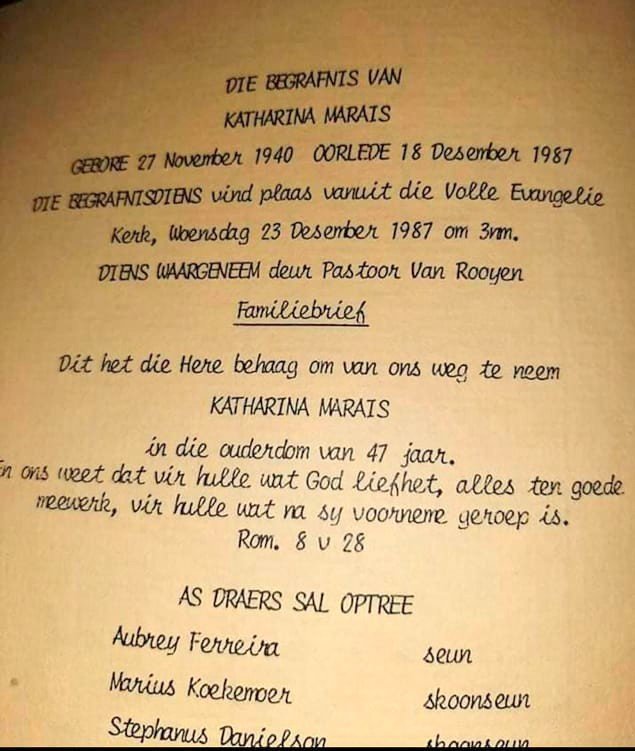 DIE BEGRAFNIS VAN
KATHARINA MARAIS
GEBORE 27 November 1940 OORLEDE 18 Desember 1987
DIE BEGRAFNISDIENS vind plaas vanuit die Volle Evangelie
Kerk, Woensdag 23 Desember 1987 om 3nm.
DIENS WAARGENEEM deur Pastoor Van Rooyen
Familiebrief
Dit het die Here behaag om van ons weg te neem
KATHARINA MARAIS
in die ouderdom van 47 jaar.
En ons weet dat vir hulle wat God liefhet, alles ten goede
meewerk, vir hulle wat na sy voorneme geroep is.
Rom. 8 v 28
AS DRAERS SAL OPTREE
Aubrey Ferreira seun
Marius Koekemoer skoonseun
Stephanus Danielson skoonseun